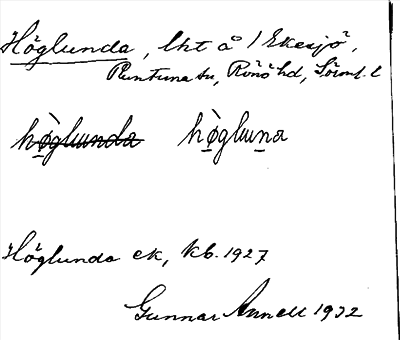 Höglunda, lht å 1 Ekesjö,
Runtuna sn, Rönö hd, Sörml. l
hø̀glunda hø̀gluna
Höglunda ek, kb. 1927
Gunnar Annell 1932